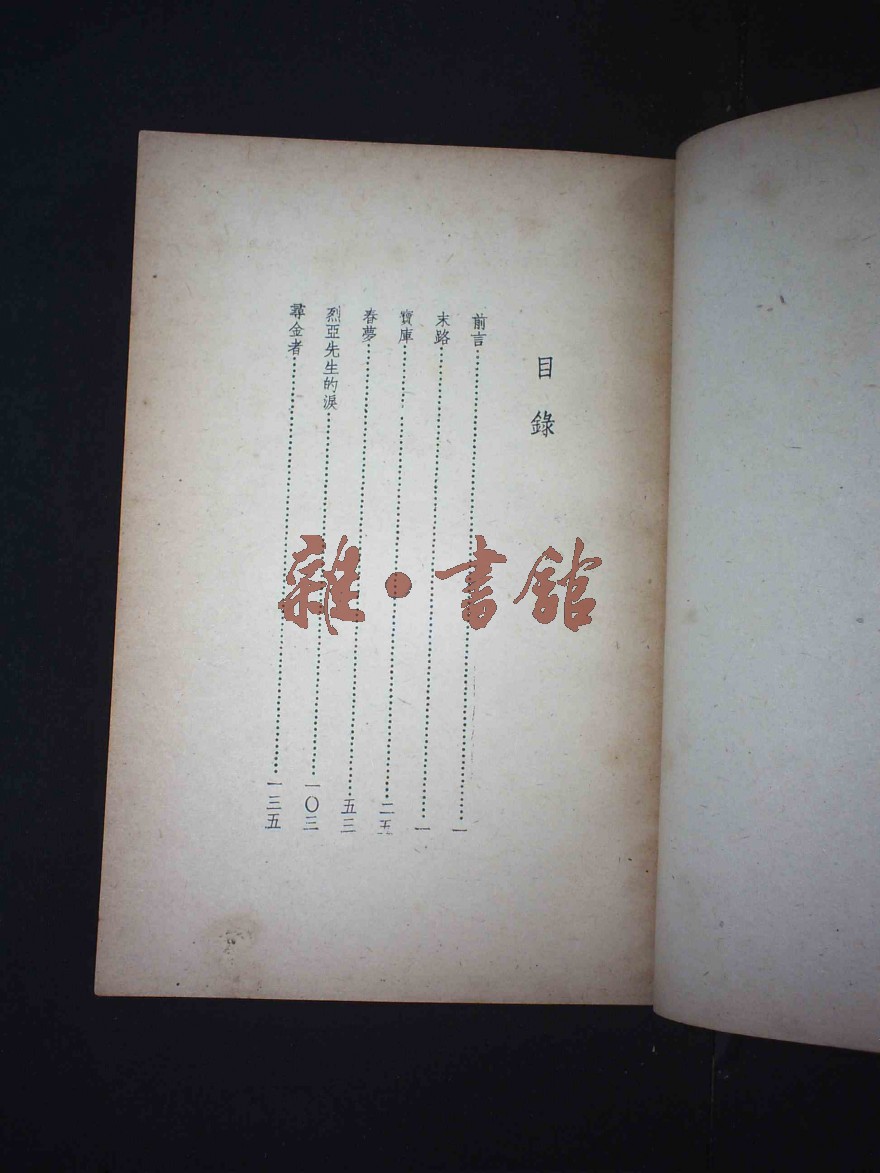 目錄
前言⋯⋯⋯⋯⋯⋯⋯⋯⋯⋯一
末路⋯⋯⋯⋯⋯⋯⋯⋯⋯⋯一
寶庫⋯⋯⋯⋯⋯⋯⋯⋯⋯⋯二五
春夢⋯⋯⋯⋯⋯⋯⋯⋯⋯⋯五三
烈亞先生的淚⋯⋯⋯⋯⋯⋯⋯⋯一〇三
尋金者⋯⋯⋯⋯⋯⋯⋯⋯⋯⋯一三五
雜·書館